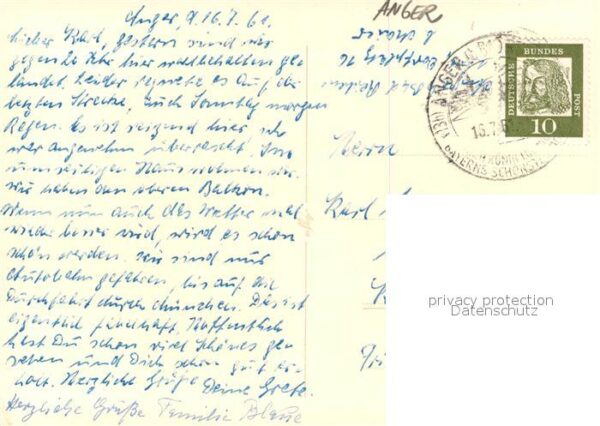 Anger, d. 16.7.61.
Lieber Karl, gestern sind wir
gegen 20 Uhr hier wohlbehalten ge
landet. Leider regnete es auf der
letzten Strecke, auch Sonntag morgen
Regen. Es ist reizend hier, ich
war angenehm überrascht. Im
Haus wohnen wir.
Wir haben den oberen Balkon.
Wenn nun auch das Wetter mal
wieder besser wird, wird es schon
schön werden. Wir sind nur
Autobahn gefahren, bis auf die
Durchfahrt durch München. Das ist
eigentlich fabelhaft. Hoffentlich
hast Du schon viel Schönes ge
sehen und Dich schon gut er
holt. Herzliche Grüße Deine Grete.
Herzliche Grüße Familie Blase
ANGER
Herrn
Karl
DEUTSCHE BUNDES POST
10
(13b) ANGER
16.7.6
BAYERNS SCHÖNST
privacy protection
Datenschutz